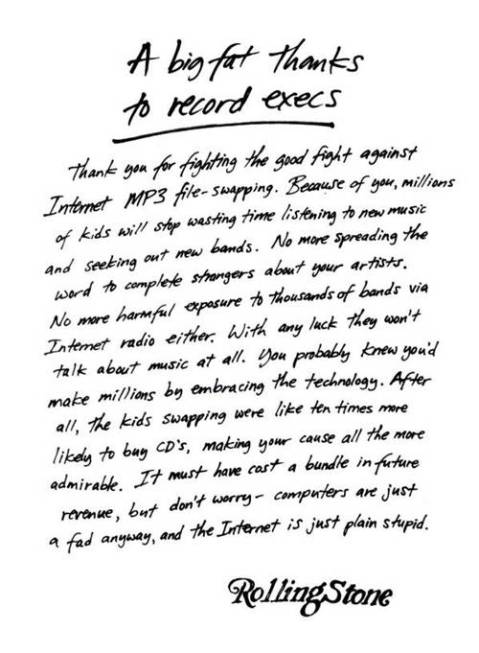 A big fat thanks
to record execs
Thank you for fighting the good fight against
Internet MP3 file-swapping. Because of you, millions
of kids will stop wasting time listening to new music
and seeking out new bands. No more spreading the
word to complete strangers about your artists.
No more harmful exposure to thousands of bands via
Internet radio either. With any luck they won't
talk about music at all. You probably knew you'd
make millions by embracing the technology. After
all, the kids swapping were like ten times more
likely to buy CD's, making your cause all the more
admirable. It must have cost a bundle in future
revenue, but don't worry - computers are just
a fad anyway, and the Internet is just plain stupid.
RollingStone